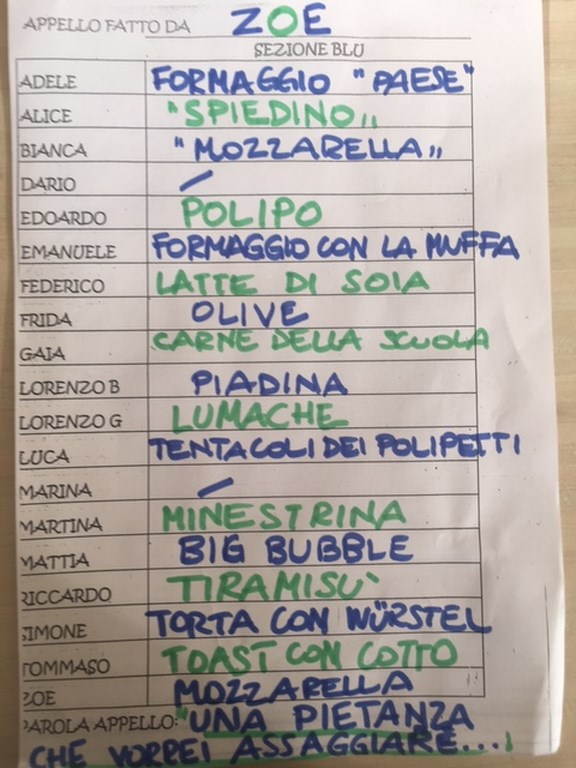 APPELLO FATTO DA ZOE
SEZIONE BLU
ADELE FORMAGGIO "PAESE"
ALICE "SPIEDINO"
BIANCA "MOZZARELLA"
DARIO /
EDOARDO POLIPO
EMANUELE FORMAGGIO CON LA MUFFA
FEDERICO LATTE DI SOIA
FRIDA OLIVE
GAIA CARNE DELLA SCUOLA
LORENZO B PIADINA
LORENZO G LUMACHE
LUCA TENTACOLI DEI POLIPETTI
MARINA /
MARTINA MINESTRINA
MATTIA BIG BUBBLE
RICCARDO TIRAMISU'
SIMONE TORTA CON WÜRSTEL
TOMMASO TOAST CON COTTO
ZOE MOZZARELLA
PAROLA APPELLO: "UNA PIETANZA
CHE VORREI ASSAGGIARE...!